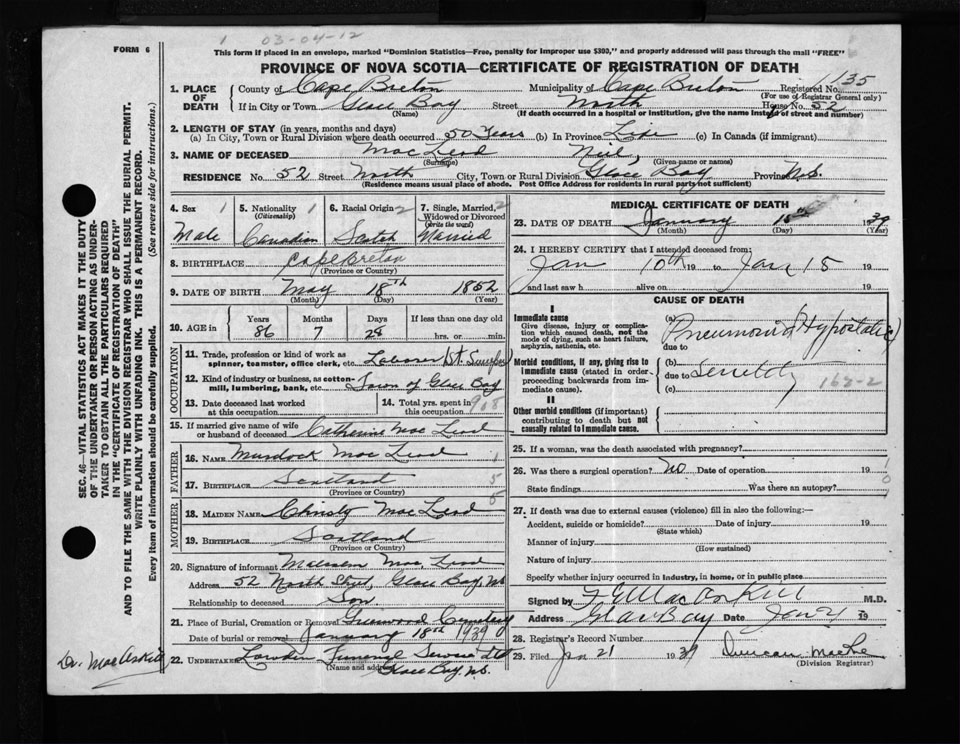 1 03-04-12
FORM 6
This form if placed in an envelope, marked "Dominion Statistics—Free, penalty for improper use $300," and properly addressed will pass through the mail "FREE"
PROVINCE OF NOVA SCOTIA—CERTIFICATE OF REGISTRATION OF DEATH
SEC. 46—VITAL STATISTICS ACT MAKES IT THE DUTY
OF THE UNDERTAKER OR PERSON ACTING AS UNDER-
TAKER TO OBTAIN ALL THE PARTICULARS REQUIRED
IN THE "CERTIFICATE OF REGISTRATION OF DEATH"
AND TO FILE THE SAME WITH THE DIVISION REGISTRAR WHO SHALL ISSUE THE BURIAL PERMIT.
WRITE PLAINLY WITH UNFADING INK. THIS IS A PERMANENT RECORD.
Every item of information should be carefully supplied. (See reverse side for instructions.)
1. PLACE OF DEATH County of Cape Breton Municipality of Cape Breton Registered No. 1135
(For use of Registrar General only)
If in City or Town Glace Bay Street North House No. 52
(Name) (If death occurred in a hospital or institution, give the name instead of street and number)
2. LENGTH OF STAY (in years, months and days)
(a) In City, Town or Rural Division where death occurred 50 Years (b) In Province Life (c) In Canada (if immigrant)
3. NAME OF DECEASED MacLeod Neil,
(Surname) (Given name or names)
RESIDENCE No. 52 Street North City, Town or Rural Division Glace Bay Province N.S.
(Residence means usual place of abode. Post Office Address for residents in rural parts not sufficient)
4. Sex 1 5. Nationality 1 (Citizenship) 6. Racial Origin 2 7. Single, Married, 2 Widowed or Divorced (Write the word)
Male Canadian Scotch Married
8. BIRTHPLACE Cape Breton
(Province or Country)
9. DATE OF BIRTH May 18th 1852
(Month) (Day) (Year)
10. AGE in Years Months Days If less than one day old
86 7 28 hrs. or min.
OCCUPATION
11. Trade, profession or kind of work as spinner, teamster, office clerk, etc. Laborer
12. Kind of industry or business, as cotton-mill, lumbering, bank, etc. Town of Glace Bay
13. Date deceased last worked at this occupation 14. Total yrs. spent in this occupation 908
15. If married give name of wife or husband of deceased Catherine MacLeod
FATHER
16. Name Murdock MacLeod
17. Birthplace Scotland
(Province or Country)
MOTHER
18. Maiden Name Christy MacLeod
19. Birthplace Scotland
(Province or Country)
20. Signature of informant Malcolm MacLeod
Address 52 North Street Glace Bay, N.S.
Relationship to deceased Son
21. Place of Burial, Cremation or Removal Greenwood Cemetery
Date of burial or removal January 18th 1939
22. Undertaker Funeral Service Ltd
(Name and address) Glace Bay, N.S.
Dr. MacAskill
MEDICAL CERTIFICATE OF DEATH
23. DATE OF DEATH January 15th 1939
(Month) (Day) (Year)
24. I HEREBY CERTIFY that I attended deceased from:
Jan 10th 19 to Jan 15 19
and last saw h alive on 19
CAUSE OF DEATH
I
Immediate cause
Give disease, injury or complication which caused death, not the mode of dying, such as heart failure, asphyxia, asthenia, etc.
(a) Pneumonia (Hypostatic)
due to
Morbid conditions, if any, giving rise to immediate cause (stated in order proceeding backwards from immediate cause).
(b) Senility
due to
(c) 162-2
II
Other morbid conditions (if important) contributing to death but not causally related to immediate cause.
25. If a woman, was the death associated with pregnancy?
26. Was there a surgical operation? No Date of operation 19
State findings Was there an autopsy?
27. If death was due to external causes (violence) fill in also the following:—
Accident, suicide or homicide? Date of injury 19
(State which)
Manner of injury
(How sustained)
Nature of injury
Specify whether injury occurred in industry, in home, or in public place
Signed by MacAskill M.D.
Address Glace Bay Date Jan 21 19
28. Registrar's Record Number
29. Filed Jan 21 1939 Duncan
(Division Registrar)